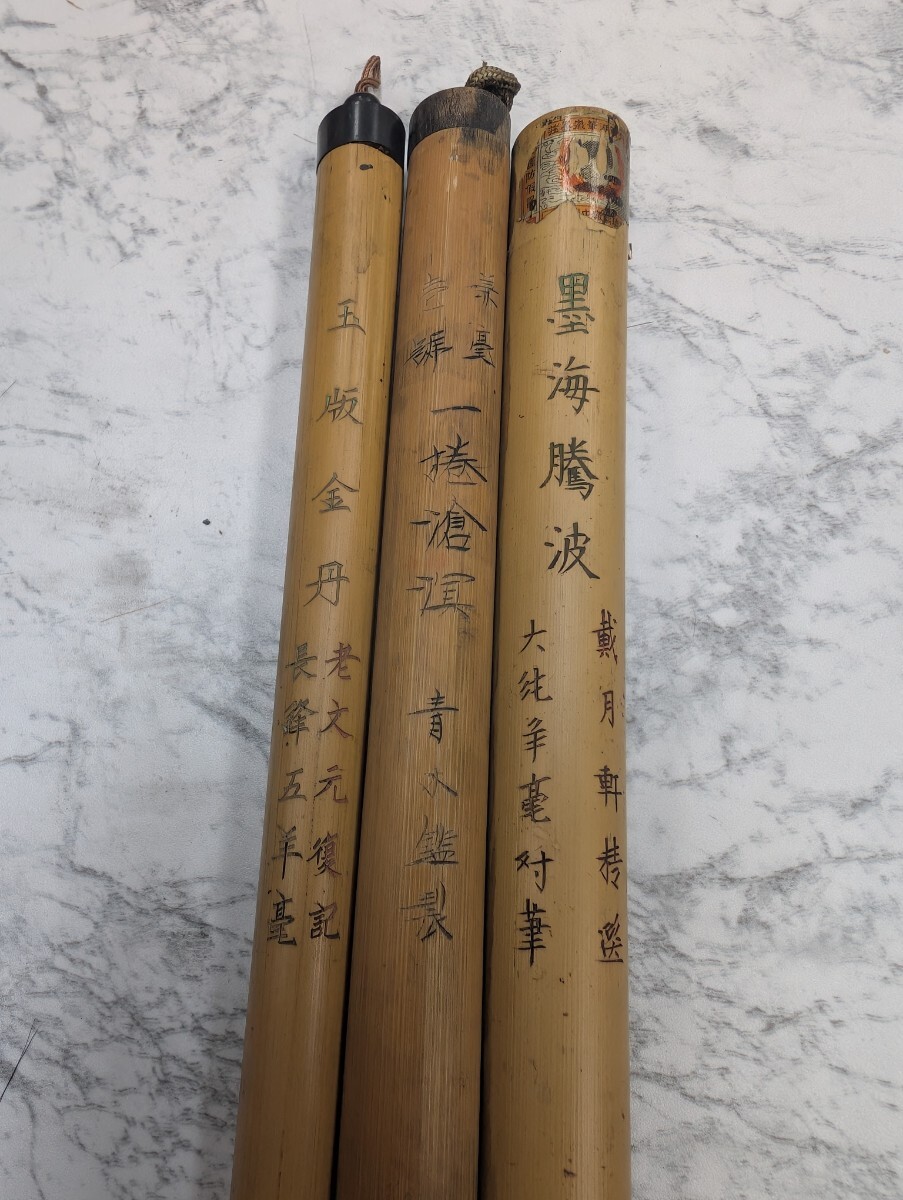 玉版金丹
老文元復記
長鋒五羊毫
羊毫
壹號
一捲滄溟
青水鑑製
墨海騰波
大純羊毫对筆
戴月軒精选